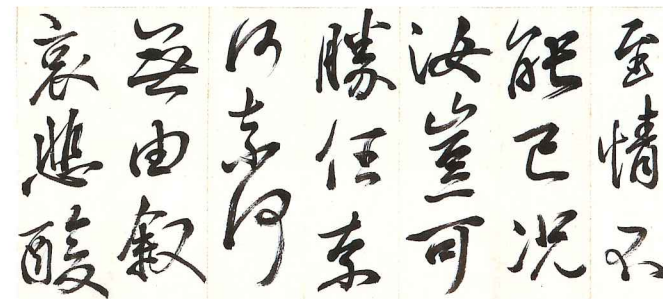 至情不
能已况
汝豈可
勝任奈
何奈何
無由叙
哀悲酸